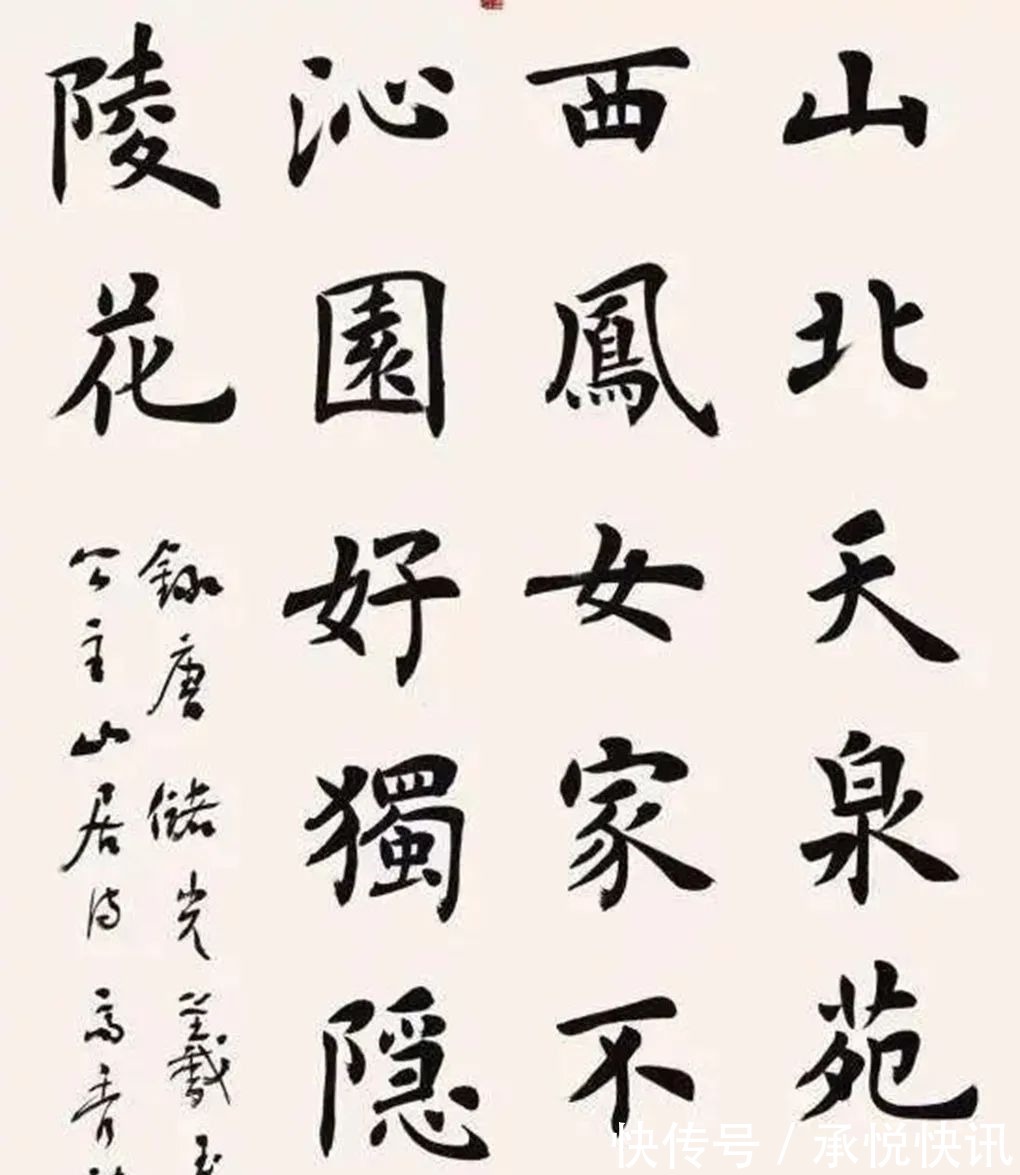 山北天泉苑
西鳳女家不
沁園好獨隱
陵花
錄唐儲光羲玉
公主山居詩 高香
快传号 / 承悦快讯